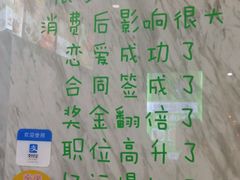 消费后影响很大
恋爱成功了
合同签成了
奖金翻倍了
职位高升了
欢迎使用